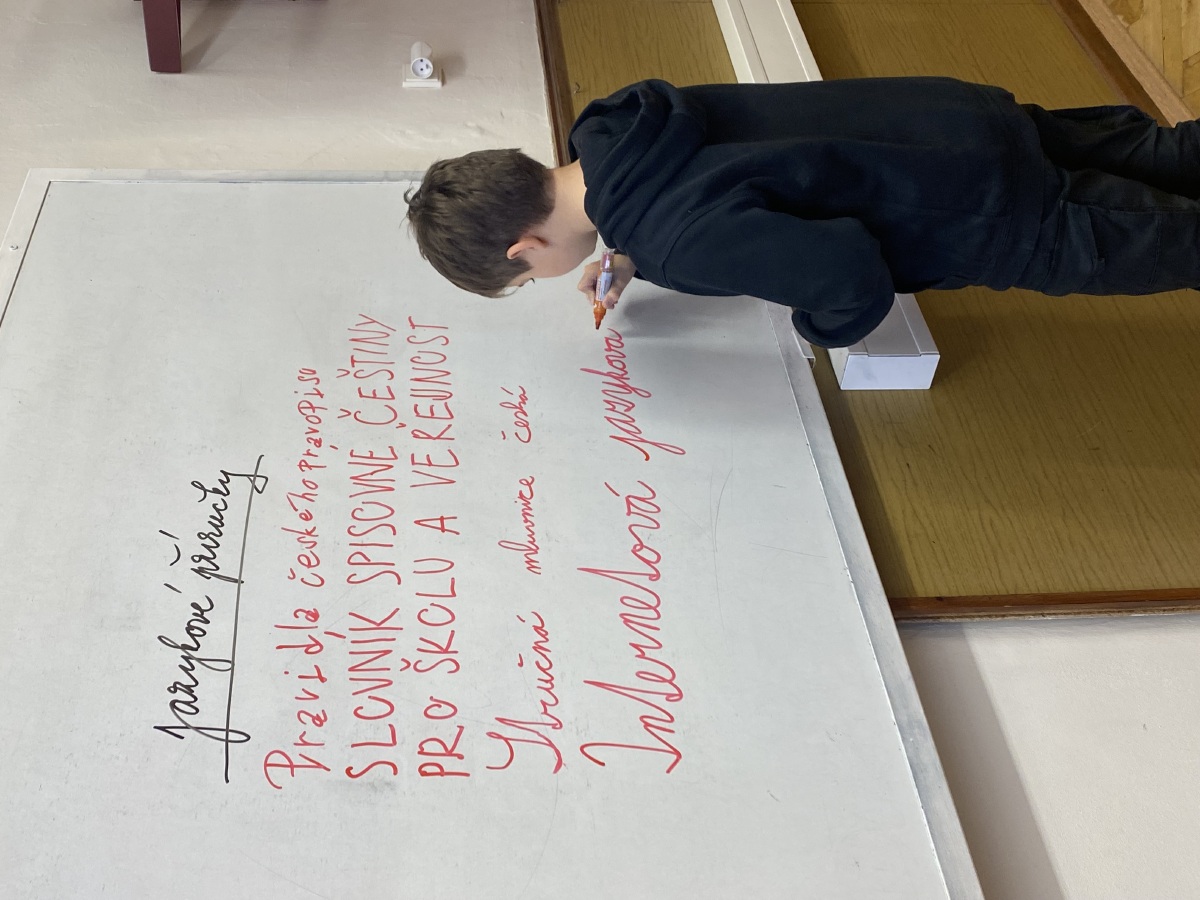 Jazykové příručky
Pravidla českého pravopisu
SLOVNÍK SPISOVNÉ ČEŠTINY
PRO ŠKOLU A VEŘEJNOST
Stručná mluvnice česká
Internetová jazyková